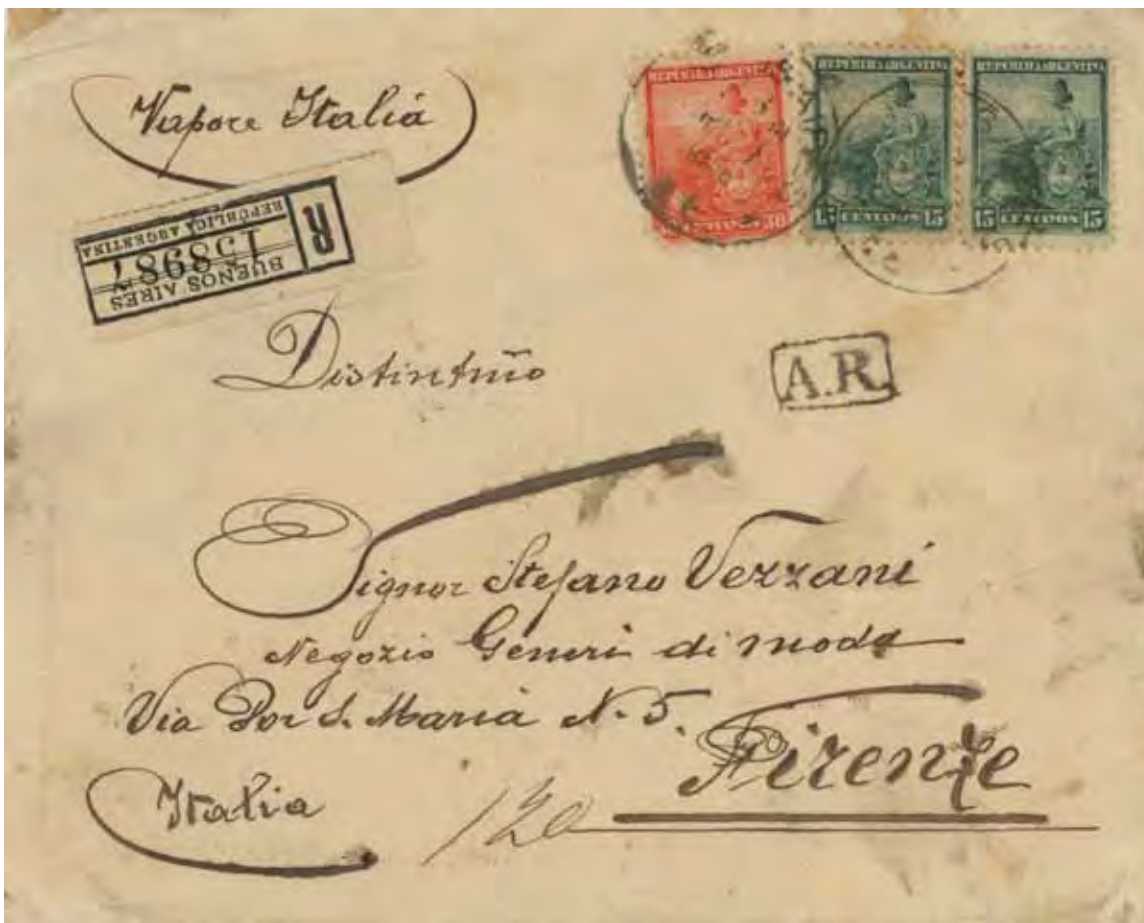 Vapore Italia
REPUBLICA ARGENTINA
30
REPUBLICA ARGENTINA
15 CENTAVOS 15
REPUBLICA ARGENTINA
15 CENTAVOS 15
R
BUENOS AIRES
158987
REPÚBLICA ARGENTINA
A.R.
Signor Stefano Vezzani
Negozio Generi di moda
Via Por S. Maria N. 5.
Firenze
Italia